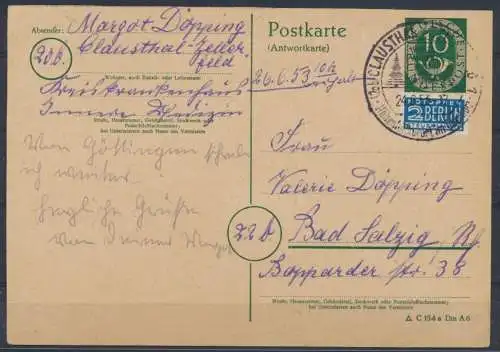 Absender: Margot Döpping
20b. Clausthal-Zeller-
feld
Wohnort, auch Zustell- oder Leitpostamt
Kreiskrankenhaus
Innere Medizin
Straße, Hausnummer, Gebäudeteil, Stockwerk oder
Postschließfachnummer;
bei Untermietern auch Name des Vermieters
Von Göttingen schreibe
ich weiter.
herzliche Grüße
von Deiner Margot
Postkarte
(Antwortkarte)
26.6.53
10
DEUTSCHE BUNDESPOST
CLAUSTHAL
NOTOPFER
2 BERLIN
STEUERMARKE
Frau
Valerie Döpping
22b. Bad Salzig, Rh.
Bopparder Str. 38
Straße, Hausnummer, Gebäudeteil, Stockwerk oder Postschließfachnummer;
bei Untermietern auch Name des Vermieters
C 154 a Din A 6